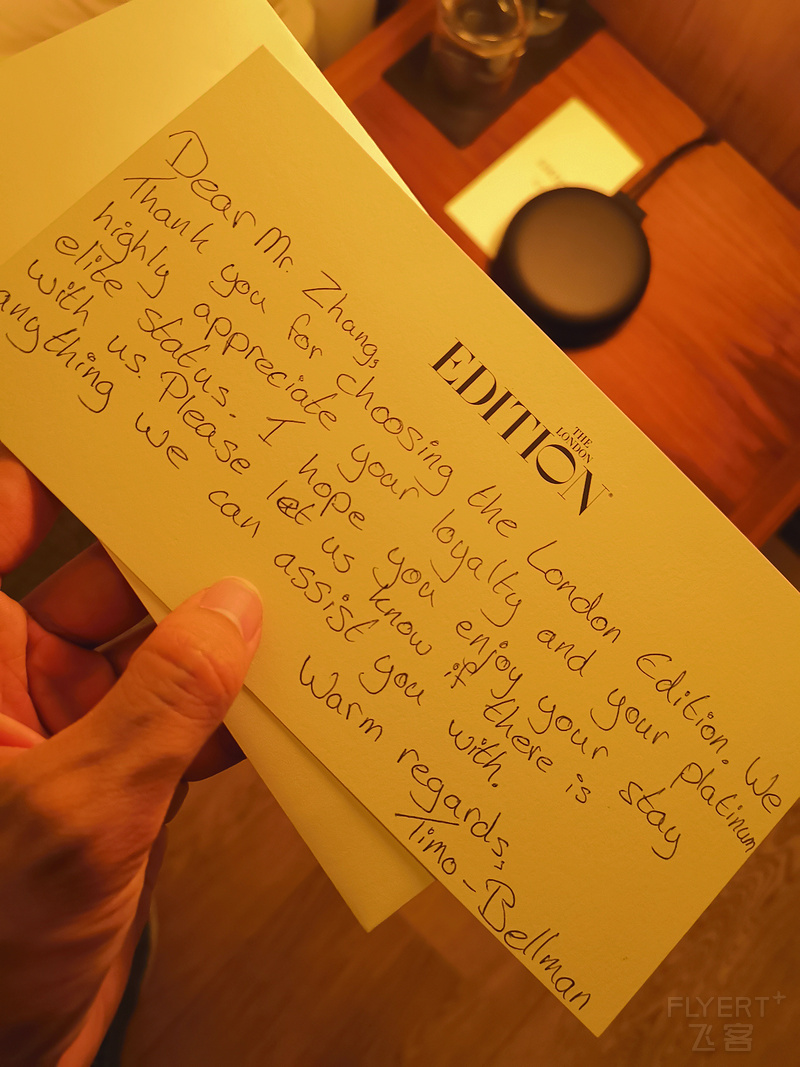 THE
LONDON
EDITION®
Dear Mr. Zhang,
Thank you for choosing the London Edition. We
highly appreciate your loyalty and your platinum
elite status. I hope you enjoy your stay
with us. Please let us know if there is
anything we can assist you with.
Warm regards,
Timo - Bellman
FLYERT+
飞客